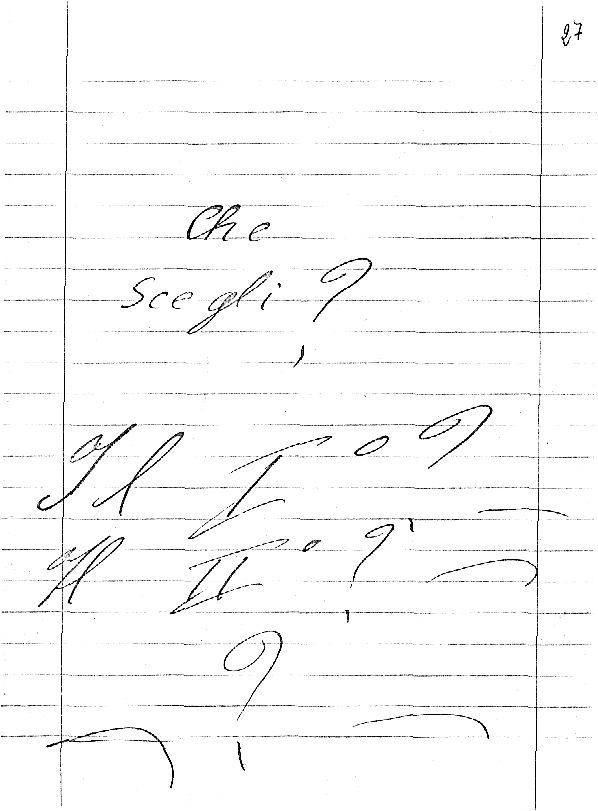 27
Che
scegli?
Il I° ?
Il II° ?
?